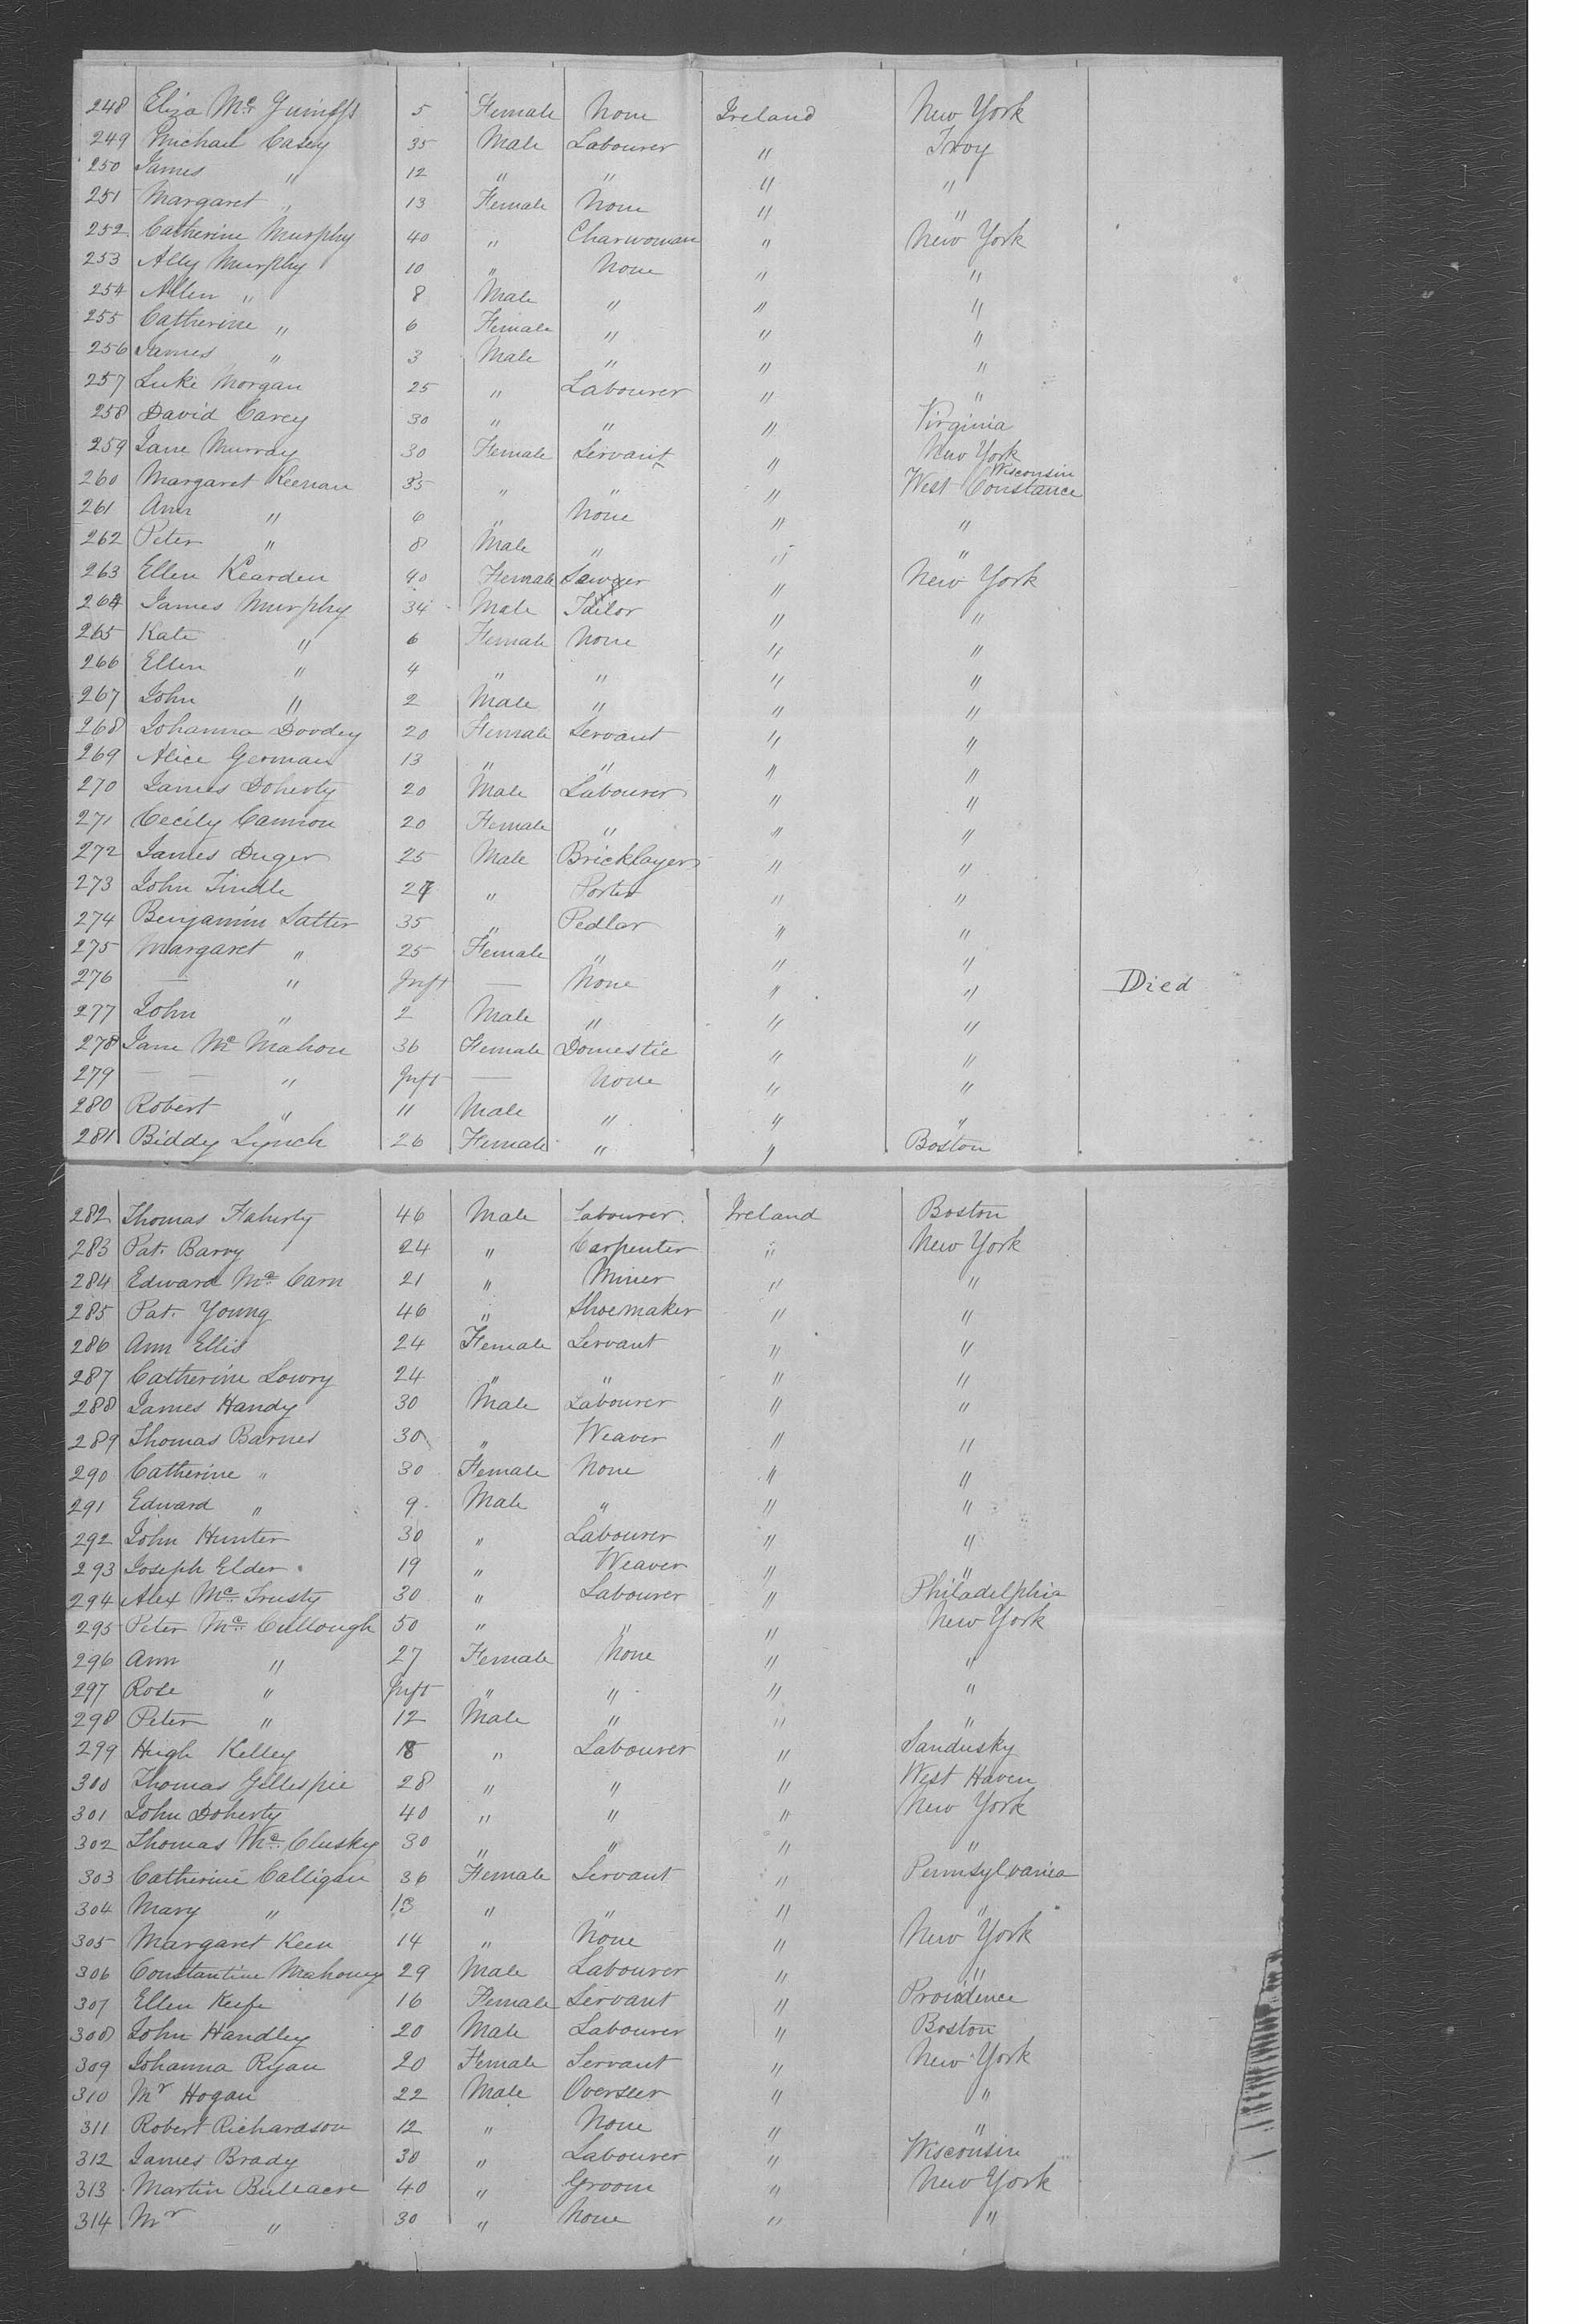 248 Eliza Mc Guiness 5 Female None Ireland New York
249 Michael Casey 35 Male Labourer " Troy
250 James " 12 " " " "
251 Margaret " 13 Female None " "
252 Catherine Murphy 40 " Charwoman " New York
253 Ally Murphy 10 " None " "
254 Allen " 8 Male " " "
255 Catherine " 6 Female " " "
256 James " 3 Male " " "
257 Luke Morgan 25 " Labourer " "
258 David Carey 30 " " " Virginia
259 Jane Murray 30 Female Servant " New York
260 Margaret Keenan 35 " " " West Constance Wisconsin
261 Ann " 6 " None " "
262 Peter " 8 Male " " "
263 Ellen Kearden 40 Female Sawyer " New York
264 James Murphy 34 Male Tailor " "
265 Kate " 6 Female None " "
266 Ellen " 4 " " " "
267 John " 2 Male " " "
268 Johanna Doodey 20 Female Servant " "
269 Alice German 13 " " " "
270 James Doherty 20 Male Labourer " "
271 Cecily Cannon 20 Female " " "
272 James Duger 25 Male Bricklayer " "
273 John Tindle 27 " Porter " "
274 Benjamin Salter 35 " Pedlar " "
275 Margaret " 25 Female " " "
276 — " Inft — None " " Died
277 John " 2 Male " " "
278 Jane Mc Mahon 36 Female Domestic " "
279 — — " Inft — None " "
280 Robert " 11 Male " " "
281 Biddy Lynch 26 Female " " Boston
282 Thomas Flaherty 46 Male Labourer Ireland Boston
283 Pat. Barry 24 " Carpenter " New York
284 Edward Mc Carn 21 " Miner " "
285 Pat. Young 46 " Shoemaker " "
286 Ann Ellis 24 Female Servant " "
287 Catherine Lowry 24 " " " "
288 James Handy 30 Male Labourer " "
289 Thomas Barnes 30 " Weaver " "
290 Catherine " 30 Female None " "
291 Edward " 9 Male " " "
292 John Hunter 30 " Labourer " "
293 Joseph Elder 19 " Weaver " "
294 Alex Mc Trusty 30 " Labourer " Philadelphia
295 Peter Mc Cullough 50 " " " New York
296 Ann " 27 Female None " "
297 Rose " Inft " " " "
298 Peter " 12 Male " " "
299 Hugh Kelley 18 " Labourer " Sandusky
300 Thomas Gillespie 28 " " " West Haven
301 John Doherty 40 " " " New York
302 Thomas Mc Clusky 30 " " " "
303 Catherine Calligan 36 Female Servant " Pennsylvania
304 Mary " 13 " " " "
305 Margaret Keen 14 " None " New York
306 Constantine Mahoney 29 Male Labourer " "
307 Ellen Keefe 16 Female Servant " Providence
308 John Handley 20 Male Labourer " Boston
309 Johanna Ryan 20 Female Servant " New York
310 Mr Hogan 22 Male Overseer " "
311 Robert Richardson 12 " None " "
312 James Brady 30 " Labourer " Wisconsin
313 Martin Buleacre 40 " Groom " New York
314 Mr " 30 " None " "